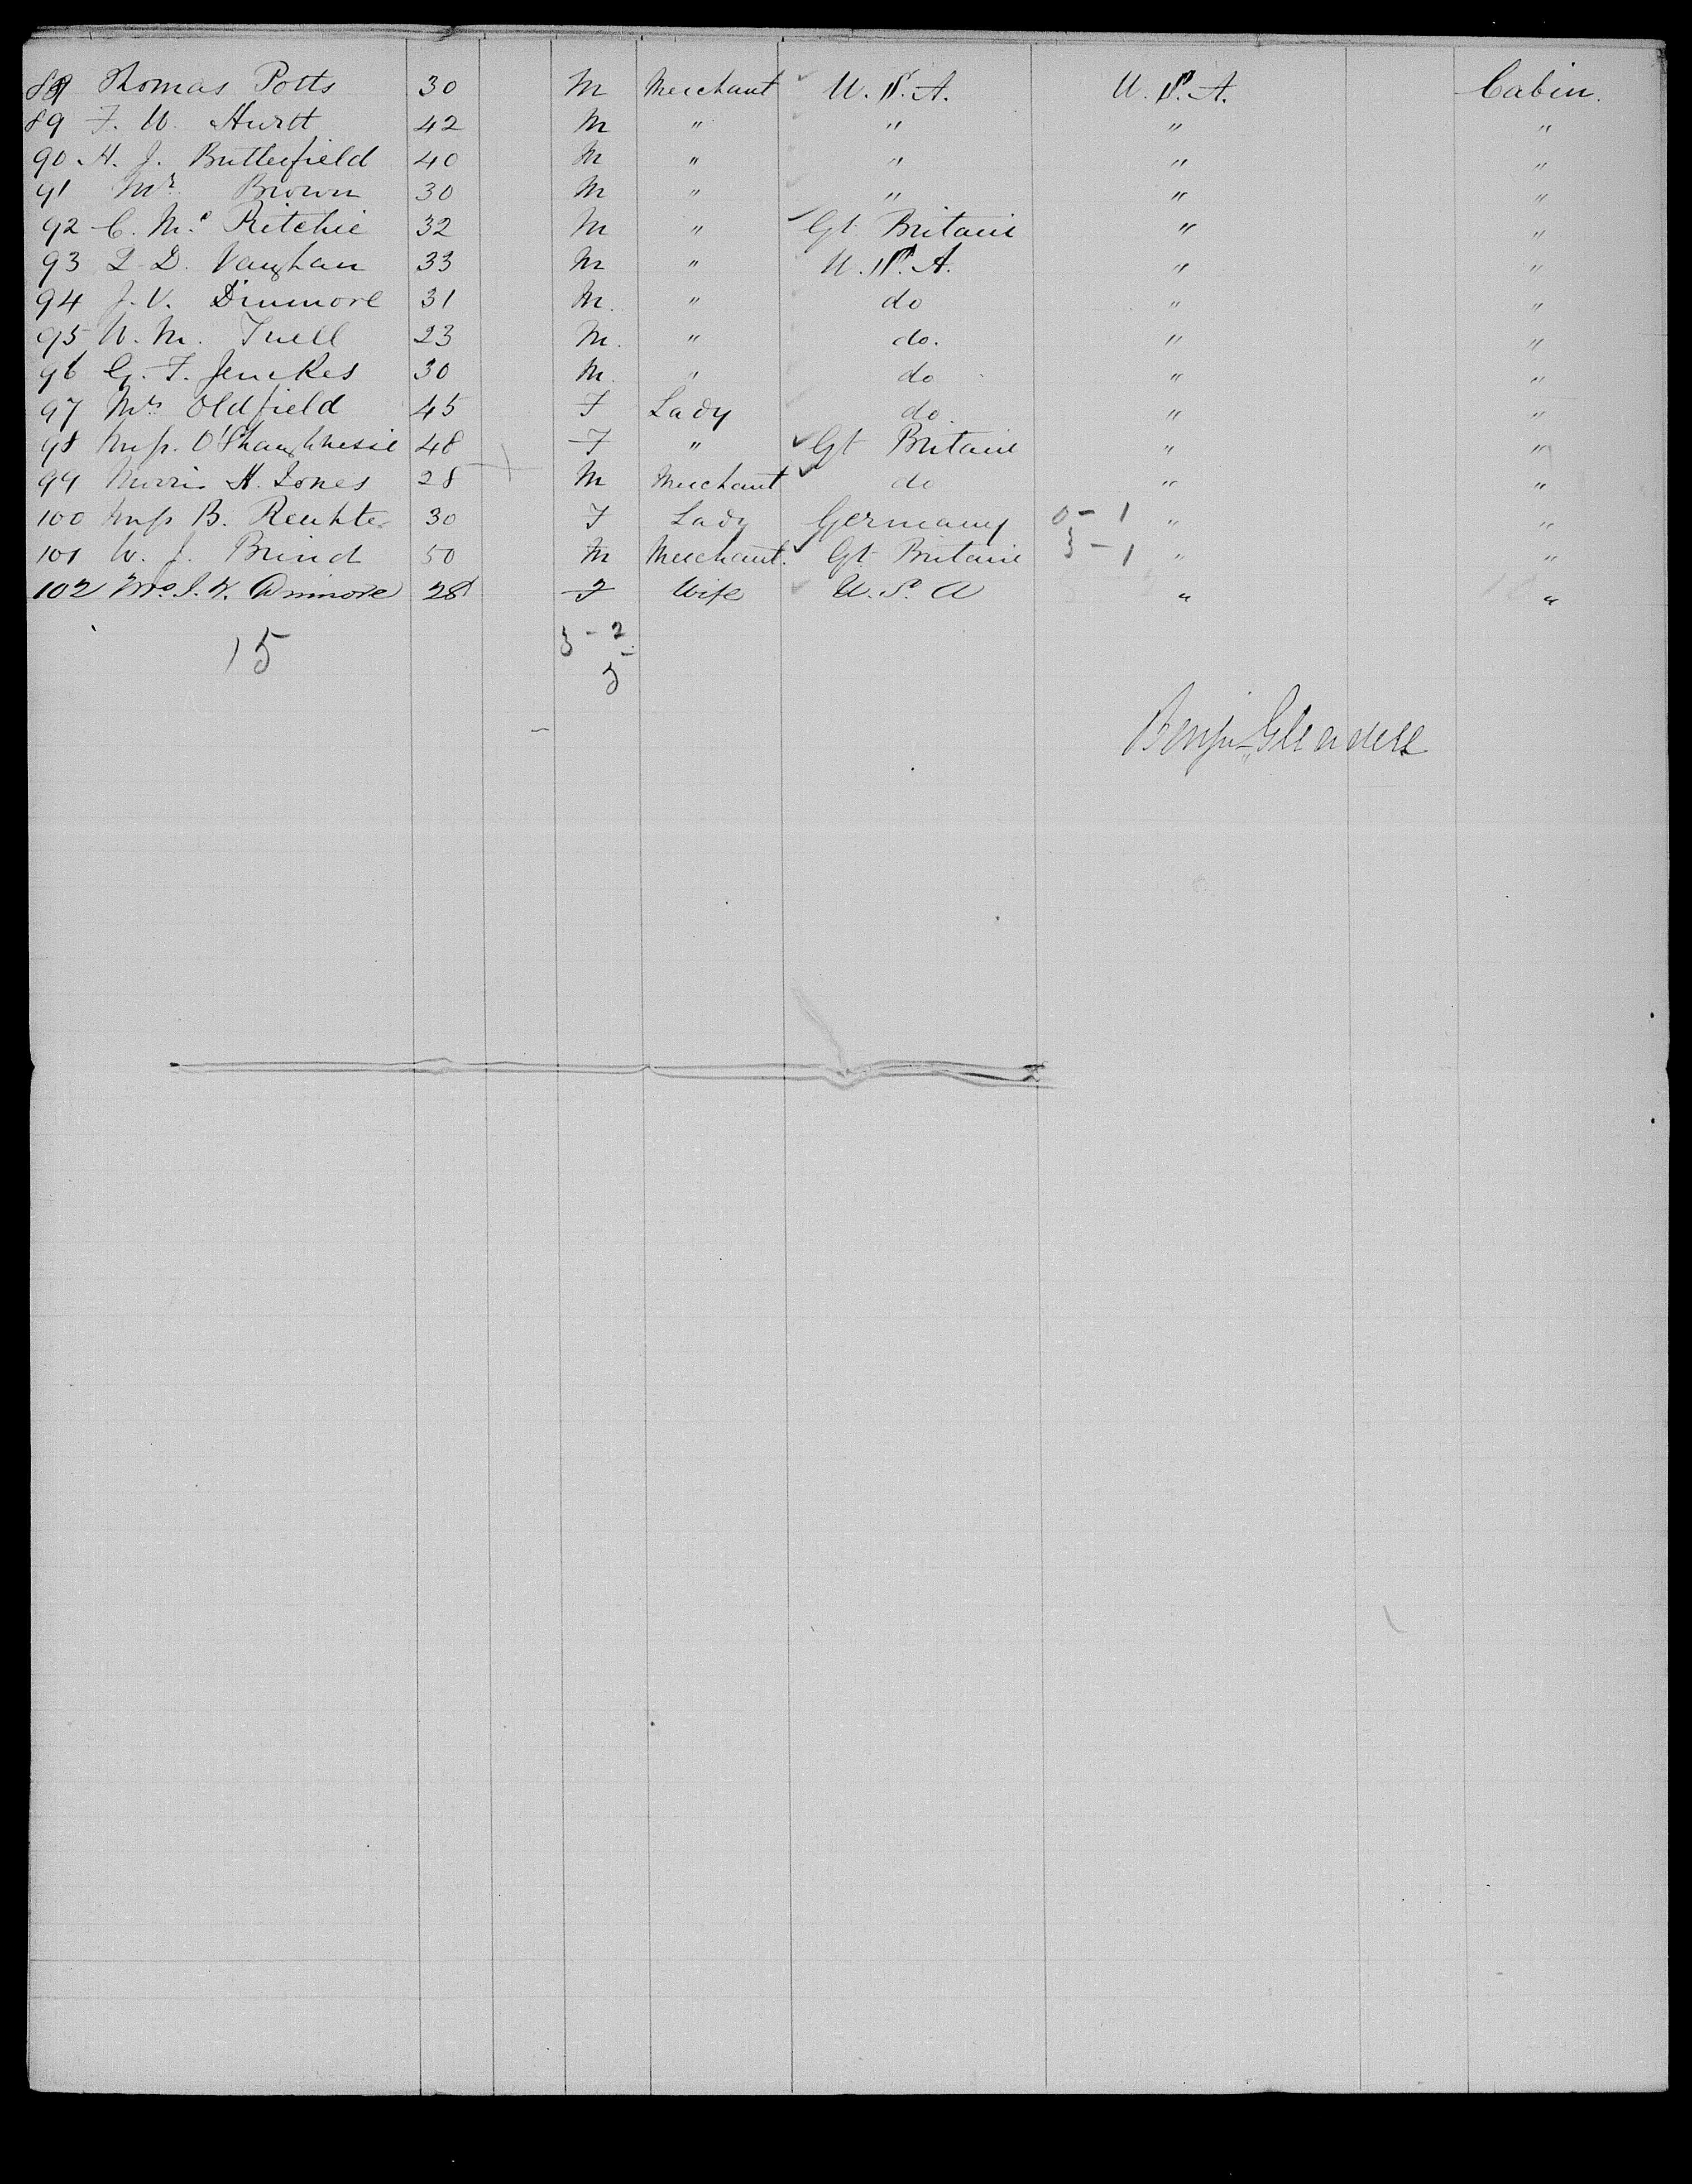 89 Thomas Potts 30 M Merchant U.S.A. U.S.A. Cabin.
89 F. W. Hurtt 42 M " " " "
90. H. J. Butterfield 40 M " " " "
91 Mr. Brown 30 M " " " "
92 C. Mc Ritchie 32 M " Gt. Britain " "
93 L. D. Vaughan 33 M " U.S.A. " "
94 J. V. Dinmore 31 M. " do " "
95 W. M. Tuell 23 M. " do. " "
96 G. F. Jenckes 30 M. " do " "
97 Mrs Oldfield 45 F Lady do " "
98 Miss. O'Shaughnesie 48 F " Gt Britain " "
99 Morris H. Jones 28 M Merchant do " "
100 Miss B. 30 F Lady Germany 0-1 " "
101 W. J. Brind 50 M Merchant. Gt Britain 3-1 " "
102 Mrs. J. V. Dinmore 28 F Wife U.S. A " "
15 3-2
5
Benjn Gleadell